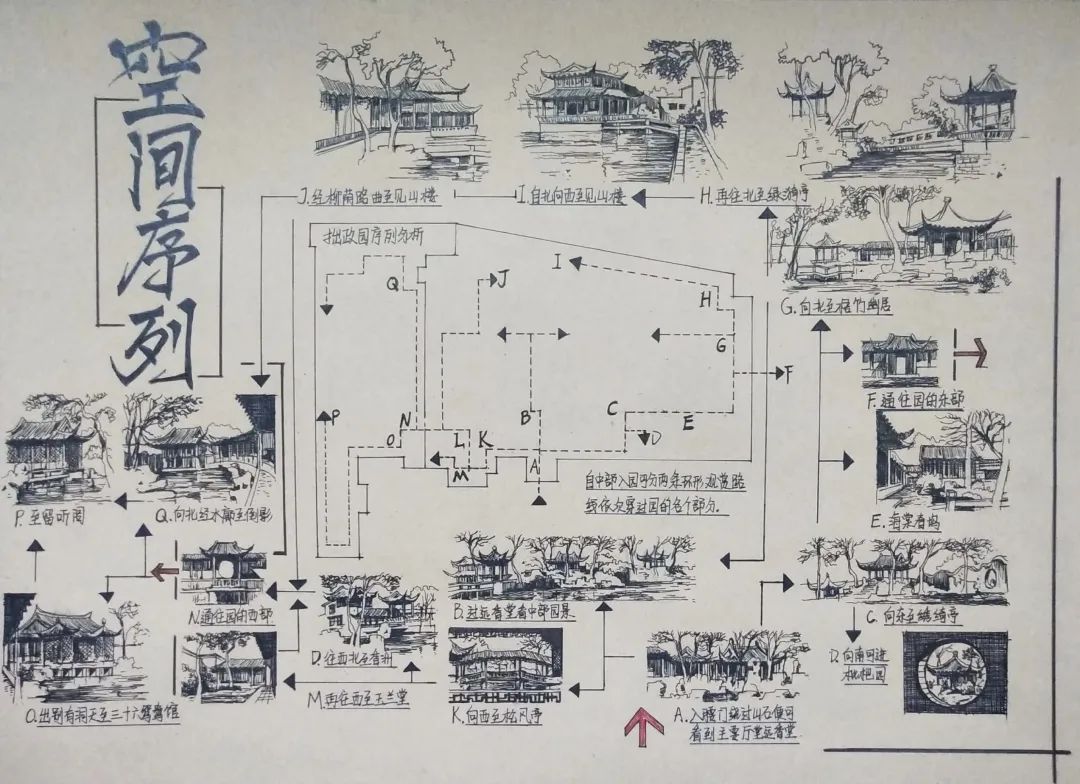 空间序列
J.经柳荫路曲至见山楼
I.自北向西至见山楼
H.再往北至绿漪亭
拙政园序列分析
I
J
Q
H
G.向北至梧竹幽居
G
F
F.通往园的东部
P
N
O
L
K
B
C
E
D
M
A
自中部入园可分两条环形观赏路
线依次穿过园的各个部分.
E.海棠春坞
P.至留听阁
Q.向北经水廊至倒影
N通往园的西部
B.过远香堂看中部园景
C.向东至绣绮亭
D.往西北至香洲
D.向南可进
枇杷园
O.出别有洞天至三十六鸳鸯馆
M.再往西至玉兰堂
K.向西至松风亭
A.入腰门绕过山石便可
看到主要厅堂远香堂.